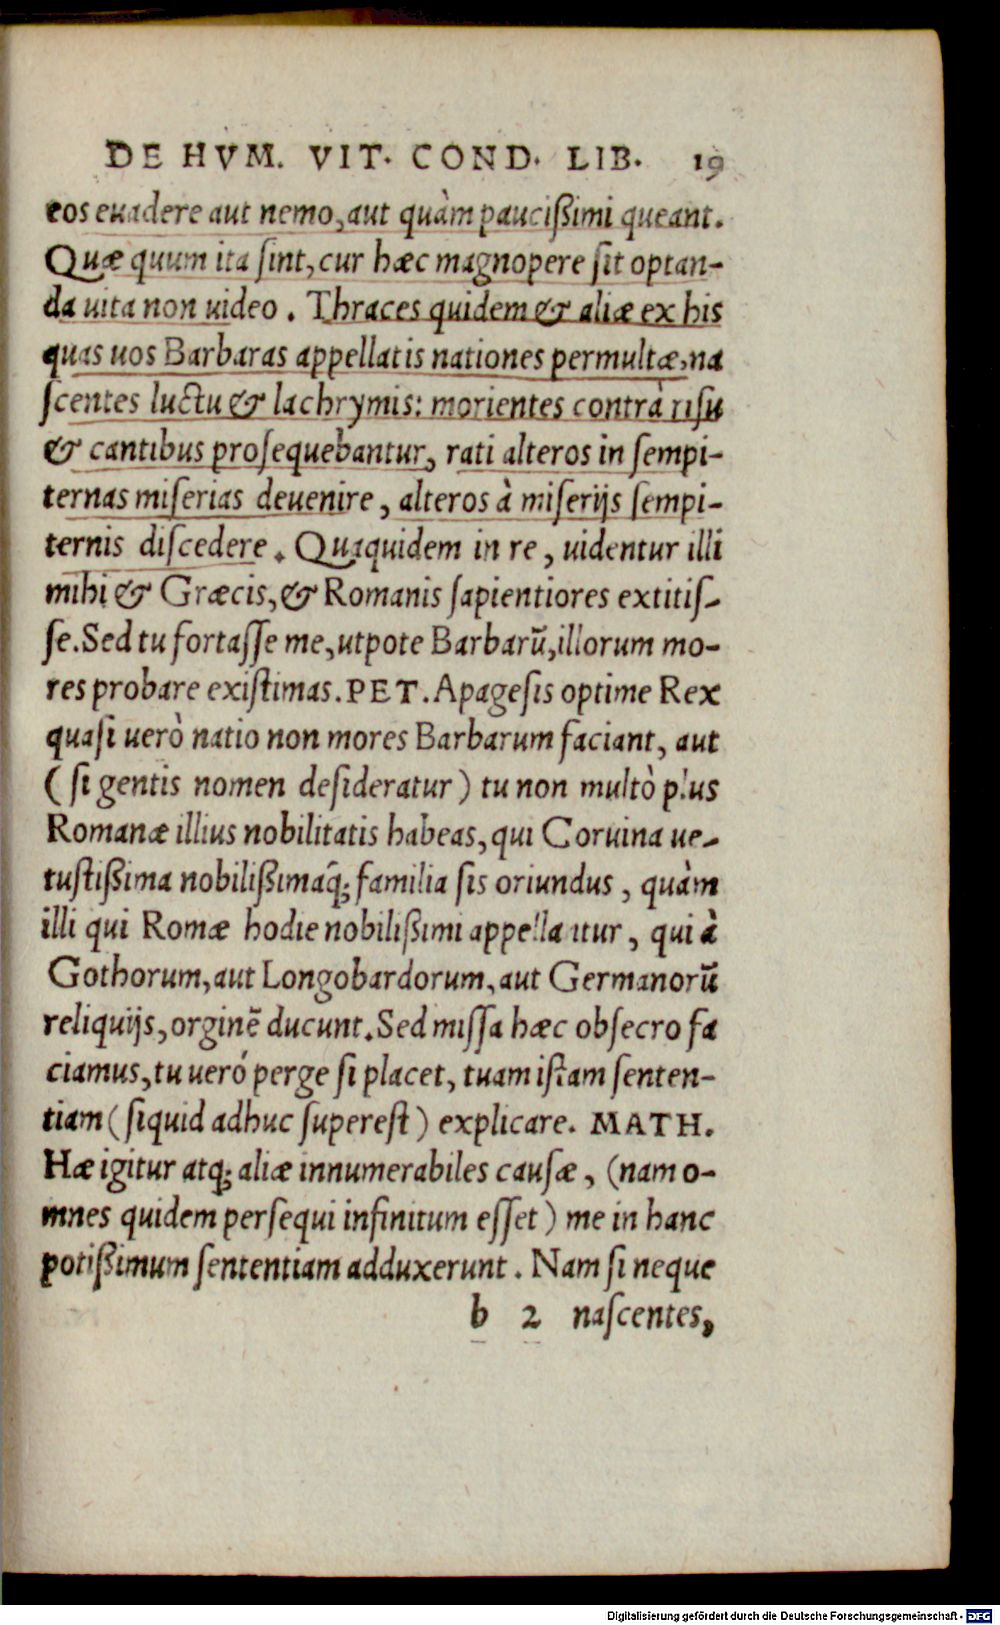 DE HVM. VIT. COND. LIB. 19
eos euadere aut nemo, aut quàm paucißimi queant.
Quæ quum ita ſint, cur hæc magnopere ſit optan-
da uita non uideo. Thraces quidem & aliæ ex his
quas uos Barbaras appellatis nationes permultæ, na
ſcentes luctu & lachrymis: morientes contrà riſu
& cantibus proſequebantur, rati alteros in ſempi-
ternas miſerias deuenire, alteros à miſerijs ſempi-
ternis diſcedere. Quaquidem in re, uidentur illi
mihi & Græcis, & Romanis ſapientiores extitiſ-
ſe. Sed tu fortaſſe me, utpote Barbarũ, illorum mo-
res probare exiſtimas. PET. Apageſis optime Rex
quaſi uerò natio non mores Barbarum faciant, aut
(ſi gentis nomen deſideratur) tu non multò plus
Romanæ illius nobilitatis habeas, qui Coruina ue-
tuſtißima nobilißimaq; familia ſis oriundus, quàm
illi qui Romæ hodie nobilißimi appellantur, qui à
Gothorum, aut Longobardorum, aut Germanorũ
reliquijs, orginẽ ducunt. Sed miſſa hæc obſecro fa
ciamus, tu ueró perge ſi placet, tuam iſtam ſenten-
tiam (ſiquid adhuc ſupereſt) explicare. MATH.
Hæ igitur atq; aliæ innumerabiles cauſæ, (nam o-
mnes quidem perſequi infinitum eſſet) me in hanc
potißimum ſententiam adduxerunt. Nam ſi neque
b 2 naſcentes,
Digitalisierung gefördert durch die Deutsche Forschungsgemeinschaft - DFG